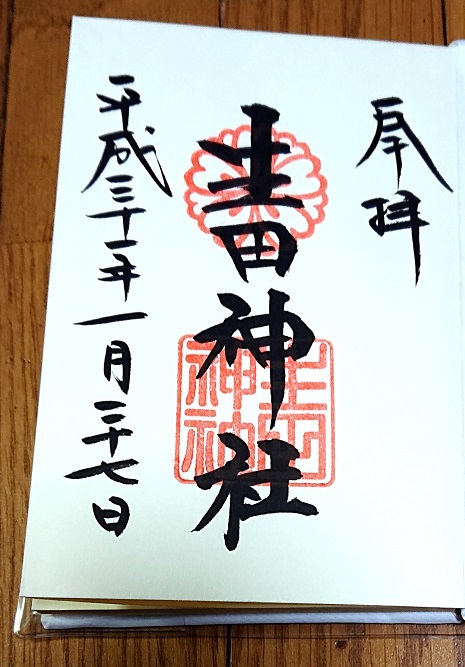 奉拝
生田神社
生田
神社
平成三十一年一月二十七日